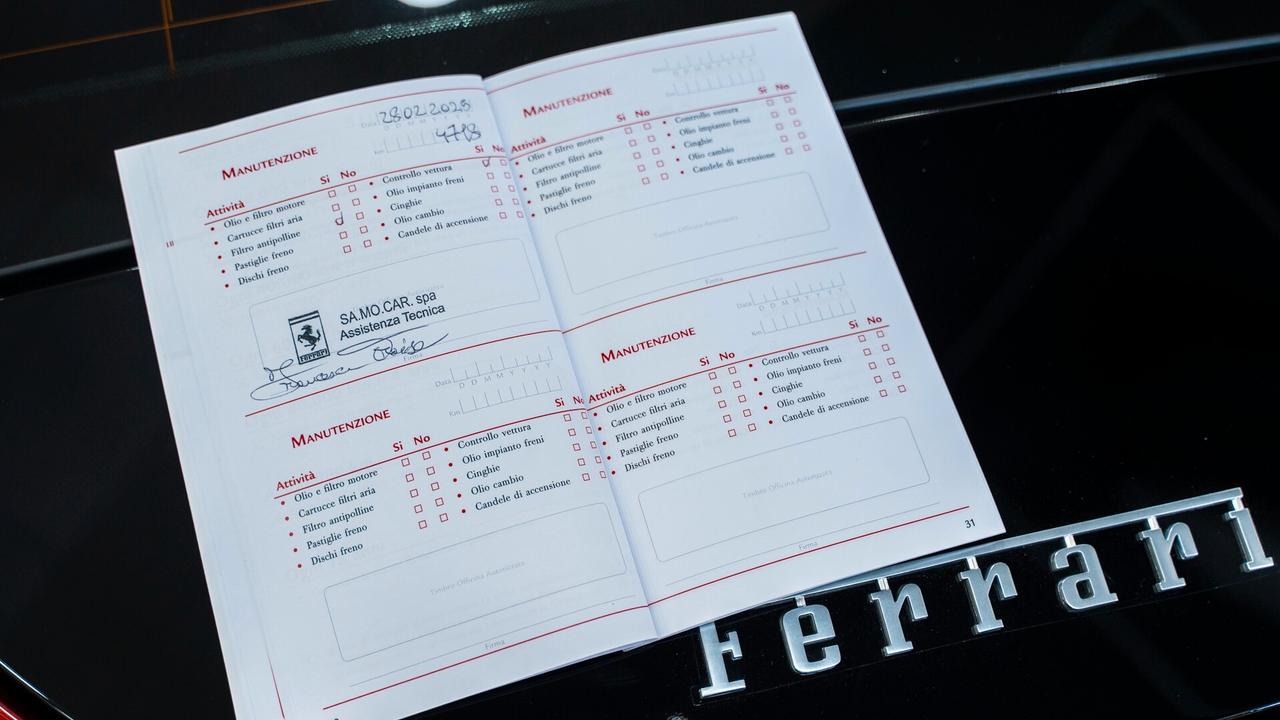 28022023
Data
D D M M Y Y Y Y
Km
4798
MANUTENZIONE
Attività Si No Si No
• Olio e filtro motore
• Cartucce filtri aria
• Filtro antipolline
• Pastiglie freno
• Dischi freno
• Controllo vettura
• Olio impianto freni
• Cinghie
• Olio cambio
• Candele di accensione
Ferrari
SA.MO.CAR. spa
Assistenza Tecnica
Firma
MANUTENZIONE
Data
D D M M Y Y Y Y
Km
Attività Si No Si No
• Olio e filtro motore
• Cartucce filtri aria
• Filtro antipolline
• Pastiglie freno
• Dischi freno
• Controllo vettura
• Olio impianto freni
• Cinghie
• Olio cambio
• Candele di accensione
Timbro Officina Autorizzata
Firma
MANUTENZIONE
Data
D D M M Y Y Y Y
Km
Attività Si No Si No
• Olio e filtro motore
• Cartucce filtri aria
• Filtro antipolline
• Pastiglie freno
• Dischi freno
• Controllo vettura
• Olio impianto freni
• Cinghie
• Olio cambio
• Candele di accensione
Timbro Officina Autorizzata
Firma
MANUTENZIONE
Data
D D M M Y Y Y Y
Km
Attività Si No Si No
• Olio e filtro motore
• Cartucce filtri aria
• Filtro antipolline
• Pastiglie freno
• Dischi freno
• Controllo vettura
• Olio impianto freni
• Cinghie
• Olio cambio
• Candele di accensione
Timbro Officina Autorizzata
Firma
31
Ferrari